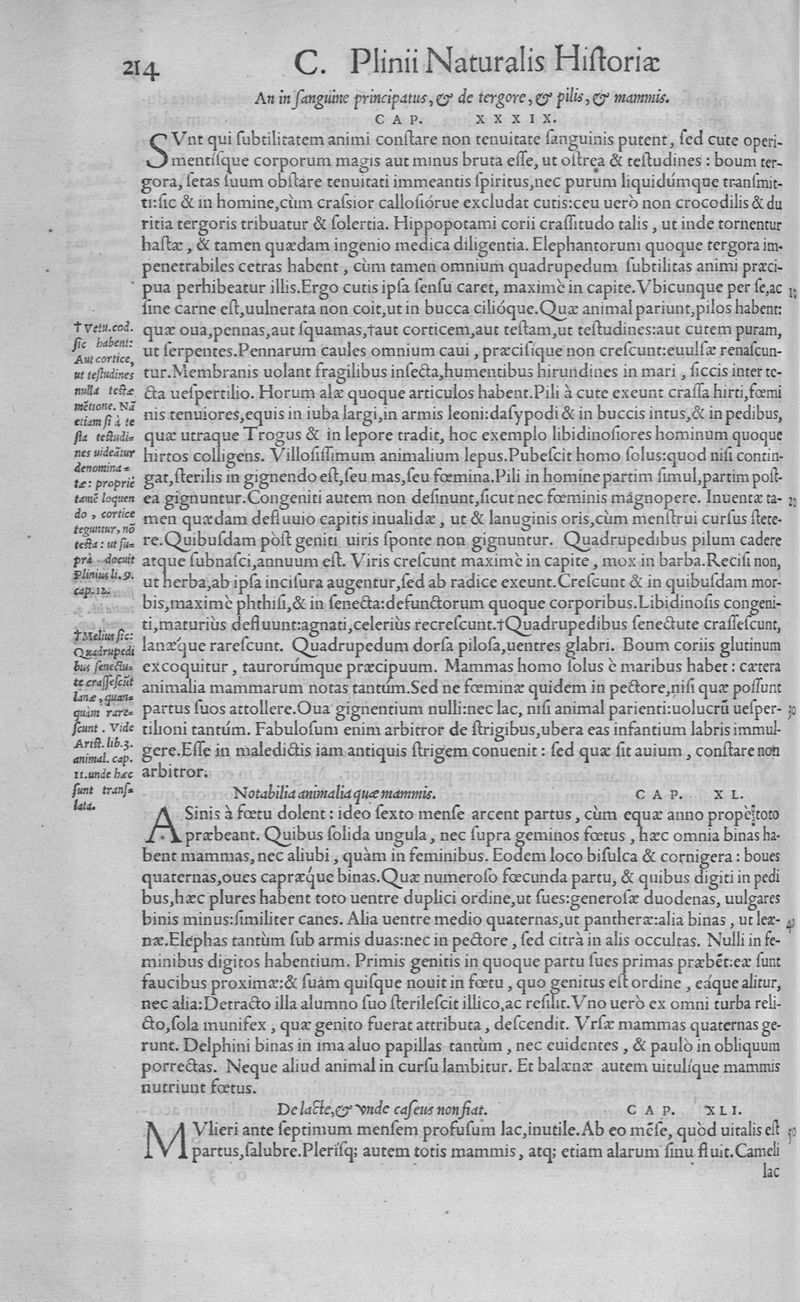 214 C. Plinii Naturalis Hiſtoriæ
An in ſanguine principatus, & de tergore, & pilis, & mammis.
CAP. XXXIX.
SVnt qui ſubtilitatem animi conſtare non tenuitate ſanguinis putent, ſed cute operi-
mentiſque corporum magis aut minus bruta eſſe, ut oſtrea & teſtudines : boum ter-
gora, ſetas ſuum obſtare tenuitati immeantis ſpiritus,nec purum liquidúmque tranſmit-
ti:ſic & in homine,cùm craſsior calloſiórue excludat cutis:ceu uerò non crocodilis & du
ritia tergoris tribuatur & ſolertia. Hippopotami corii craſſitudo talis , ut inde tornentur
haſtæ , & tamen quædam ingenio medica diligentia. Elephantorum quoque tergora im-
penetrabiles cetras habent , cùm tamen omnium quadrupedum ſubtilitas animi præci-
pua perhibeatur illis.Ergo cutis ipſa ſenſu caret, maximè in capite.Vbicunque per ſe,ac 10
ſine carne eſt,uulnerata non coit,ut in bucca cilióque.Quæ animal pariunt,pilos habent:
quæ oua,pennas,aut ſquamas,†aut corticem,aut teſtam,ut teſtudines:aut cutem puram,
ut ſerpentes.Pennarum caules omnium caui , præciſíque non creſcunt:euulſæ renaſcun-
tur.Membranis uolant fragilibus inſecta,humentibus hirundines in mari , ſiccis inter te-
cta ueſpertilio. Horum alæ quoque articulos habent.Pili à cute exeunt craſſa hirti,fœmi
nis tenuiores,equis in iuba largi,in armis leoni:daſypodi & in buccis intus,& in pedibus,
quæ utraque Trogus & in lepore tradit, hoc exemplo libidinoſiores hominum quoque
hirtos colligens. Villoſiſſimum animalium lepus.Pubeſcit homo ſolus:quod niſi contin-
gat,ſterilis in gignendo eſt,ſeu mas,ſeu fœmina.Pili in homine partim ſimul,partim poſt-
ea gignuntur.Congeniti autem non deſinunt,ſicut nec fœminis magnopere. Inuentæ ta- 20
men quædam defluuio capitis inualidæ , ut & lanuginis oris,cùm menſtrui curſus ſtete-
re.Quibuſdam pòſt geniti uiris ſponte non gignuntur. Quadrupedibus pilum cadere
atque ſubnaſci,annuum eſt. Viris creſcunt maximè in capite , mox in barba.Reciſi non,
ut herba,ab ipſa inciſura augentur,ſed ab radice exeunt.Creſcunt & in quibuſdam mor-
bis,maximè phthiſi,& in ſenecta:defunctorum quoque corporibus.Libidinoſis congeni-
ti,maturiùs defluunt:agnati,celeriùs recreſcunt.†Quadrupedibus ſenectute craſſeſcunt,
lanǽque rareſcunt. Quadrupedum dorſa piloſa,uentres glabri. Boum coriis glutinum
excoquitur , taurorúmque præcipuum. Mammas homo ſolus è maribus habet : cætera
animalia mammarum notas tantùm.Sed ne fœminæ quidem in pectore,niſi quæ poſſunt
partus ſuos attollere.Oua gignentium nulli:nec lac, niſi animal parienti:uolucrū ueſper- 30
tilioni tantùm. Fabuloſum enim arbitror de ſtrigibus,ubera eas infantium labris immul-
gere.Eſſe in maledictis iam antiquis ſtrigem conuenit : ſed quæ ſit auium , conſtare non
arbitror.
† Vetu.cod.
ſic habent:
Aut cortice,
ut teſtudines
nulla teſtæ
mētione. Nā
etiam ſi à te
ſta teſtudi-
nes uideātur
denomina-
tæ: propriè
tamē loquen
do , cortice
teguntur, nō
teſta : ut ſu-
prà docuit
Plinius li.9.
cap.12.
†Melius ſic:
Quadrupedi
bus ſenectu-
te craſſeſcūt
lanæ , quan-
quàm rare-
ſcunt . Vide
Ariſt. lib.3.
animal. cap.
11.unde hæc
ſunt tranſ-
lata.
Notabilia animalia quæ mammis. CAP. XL.
ASinis à fœtu dolent : ideo ſexto menſe arcent partus , cùm equæ anno propè toto
præbeant. Quibus ſolida ungula , nec ſupra geminos fœtus , hæc omnia binas ha-
bent mammas, nec aliubi , quàm in feminibus. Eodem loco biſulca & cornigera : boues
quaternas,oues caprǽque binas.Quæ numeroſo fœcunda partu, & quibus digiti in pedi
bus,hæc plures habent toto uentre duplici ordine,ut ſues:generoſæ duodenas, uulgares
binis minus:ſimiliter canes. Alia uentre medio quaternas,ut pantheræ:alia binas , ut leæ- 40
næ.Elephas tantùm ſub armis duas:nec in pectore , ſed citrà in alis occultas. Nulli in fe-
minibus digitos habentium. Primis genitis in quoque partu ſues primas præbēt:eæ ſunt
faucibus proximæ:& ſuam quiſque nouit in fœtu , quo genitus eſt ordine , eáque alitur,
nec alia:Detracto illa alumno ſuo ſterileſcit illico,ac reſilit.Vno uerò ex omni turba reli-
cto,ſola munifex , quæ genito fuerat attributa , deſcendit. Vrſæ mammas quaternas ge-
runt. Delphini binas in ima aluo papillas tantùm , nec euidentes , & paulò in obliquum
porrectas. Neque aliud animal in curſu lambitur. Et balænæ autem uitulíque mammis
nutriunt fœtus.
De lacte,& vnde caſeus non fiat. CAP. XLI.
MVlieri ante ſeptimum menſem profuſum lac,inutile.Ab eo mēſe, quòd uitalis eſt 50
partus,ſalubre.Pleríſq; autem totis mammis , atq; etiam alarum ſinu fluit.Cameli
lac